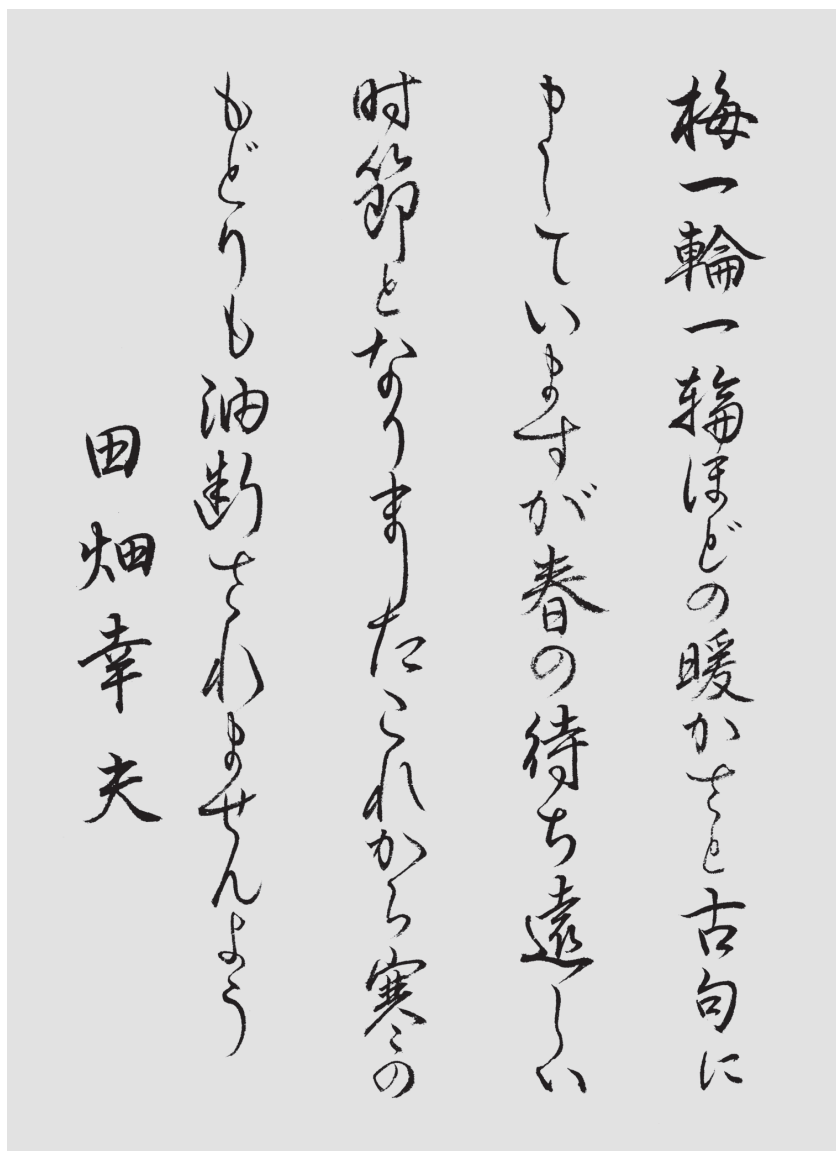 梅一輪一輪ほどの暖かさと古句に
申していますが春の待ち遠しい
時節となりましたこれから寒さの
もどりも油断されませんよう
田畑幸夫